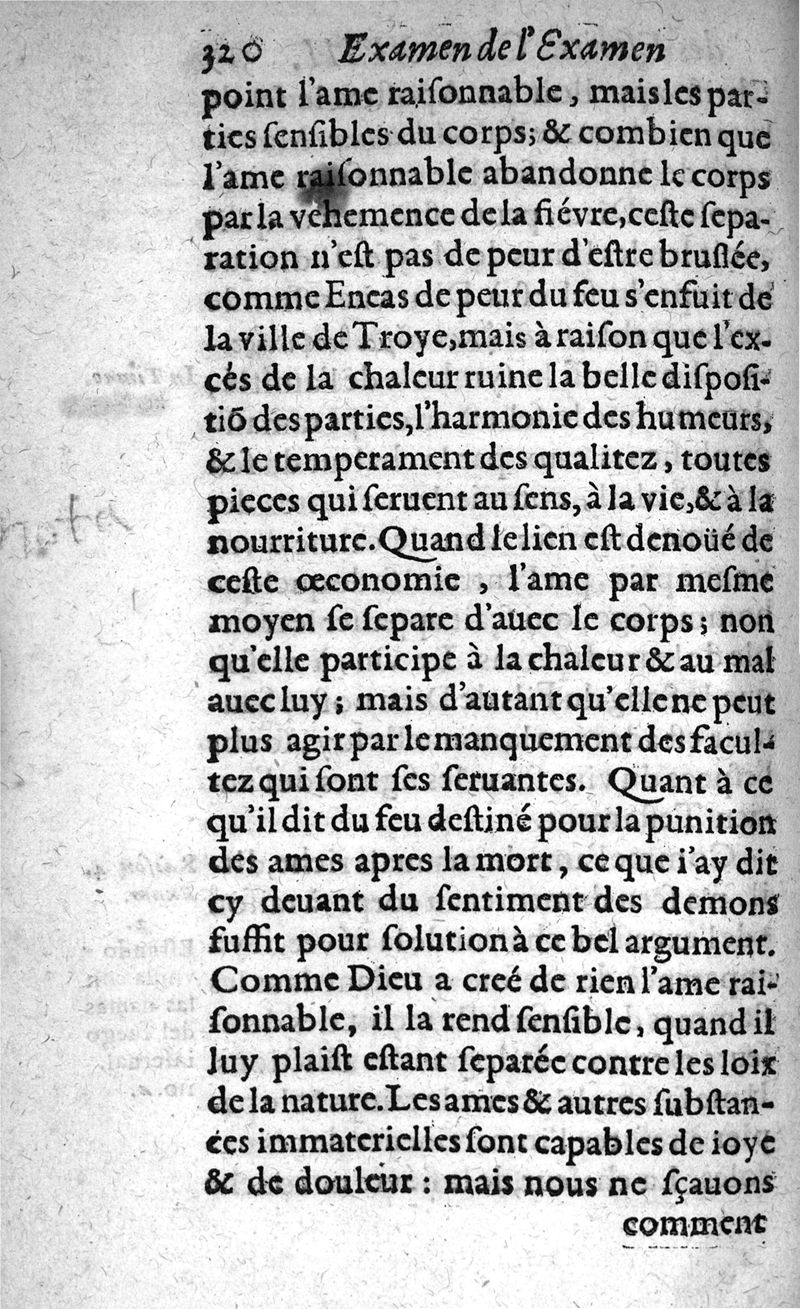 320 Examen de l'Examen
point l'ame raiſonnable, mais les par-
ties ſenſibles du corps; & combien que
l'ame raiſonnable abandonne le corps
par la vehemence de la fiévre, ceſte ſepa-
ration n'eſt pas de peur d'eſtre bruſlée,
comme Eneas de peur du feu s'enfuit de
la ville de Troye, mais à raiſon que l'ex-
cés de la chaleur ruine la belle diſpoſi-
tiõ des parties, l'harmonie des humeurs,
& le temperament des qualitez, toutes
pieces qui ſeruent au ſens, à la vie, & à la
nourriture. Quand le lien eſt denoüé de
ceſte œconomie, l'ame par meſme
moyen ſe ſepare d'auec le corps; non
qu'elle participe à la chaleur & au mal
auec luy; mais d'autant qu'elle ne peut
plus agir par le manquement des facul-
tez qui ſont ſes ſeruantes. Quant à ce
qu'il dit du feu deſtiné pour la punition
des ames apres la mort, ce que i'ay dit
cy deuant du ſentiment des demons
ſuffit pour ſolution à ce bel argument.
Comme Dieu a creé de rien l'ame rai-
ſonnable, il la rend ſenſible, quand il
luy plaiſt eſtant ſeparée contre les loix
de la nature. Les ames & autres ſubſtan-
ces immaterielles ſont capables de ioye
& de douleur : mais nous ne ſçauons
comment